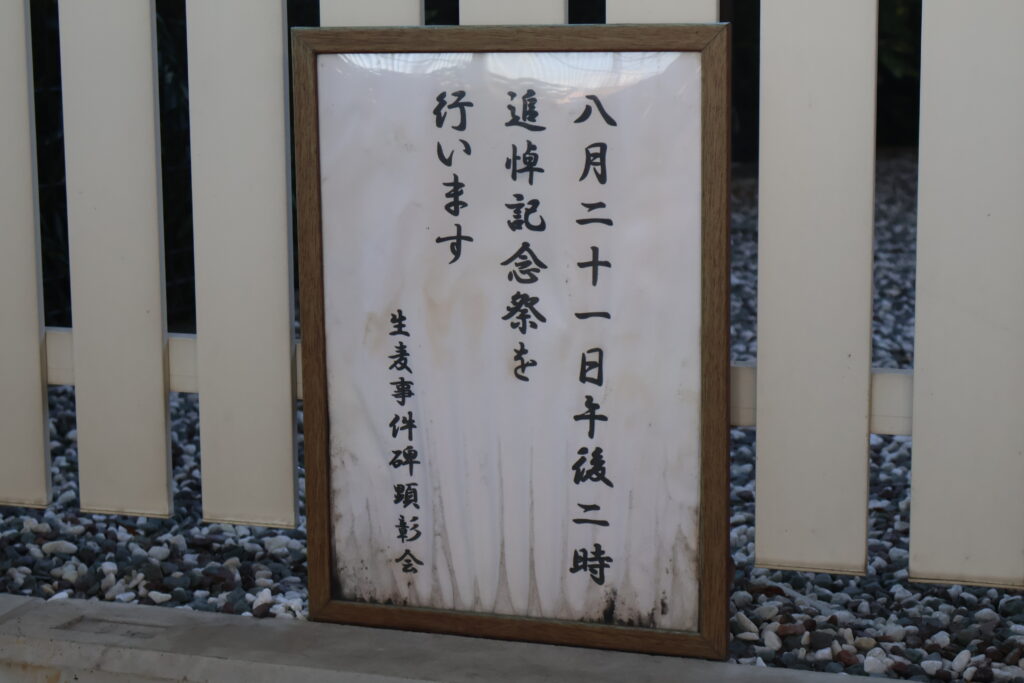 八月二十一日午後二時
追悼記念祭を
行います
生麦事件碑顕彰会